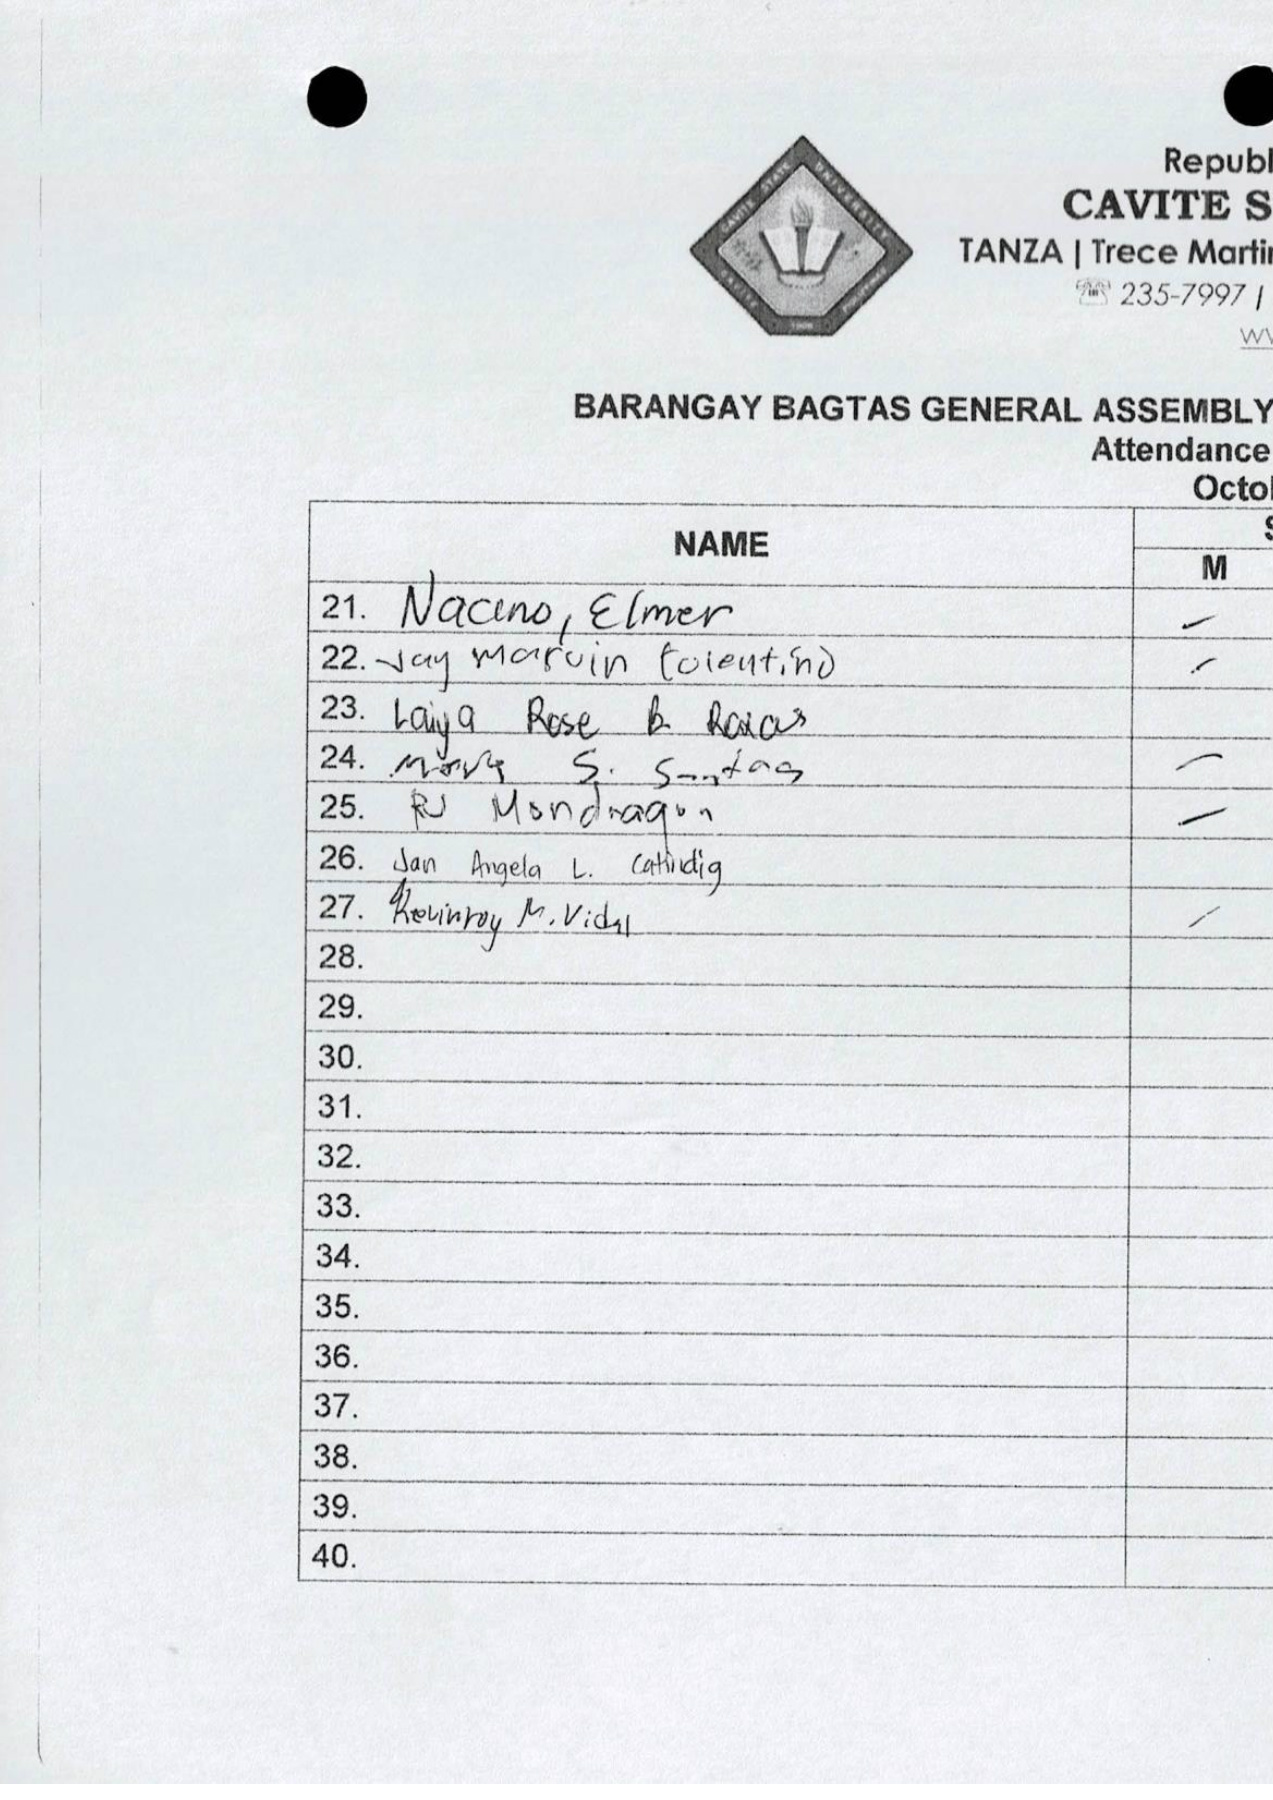 CAVITE STATE UNIVERSITY
CAVITE
1906
Republ
CAVITE S
TANZA | Trece Martir
☏ 235-7997 |
BARANGAY BAGTAS GENERAL ASSEMBLY
Attendance
Octo
NAME
M
21. Nacino, Elmer
22. Jay marvin tolentino
23. Laiya Rose B. Roxas
24. Mark S. Santos
25. RJ Mondragon
26. Jan Angela L. Catindig
27. Kevinroy M. Vidal
28.
29.
30.
31.
32.
33.
34.
35.
36.
37.
38.
39.
40.